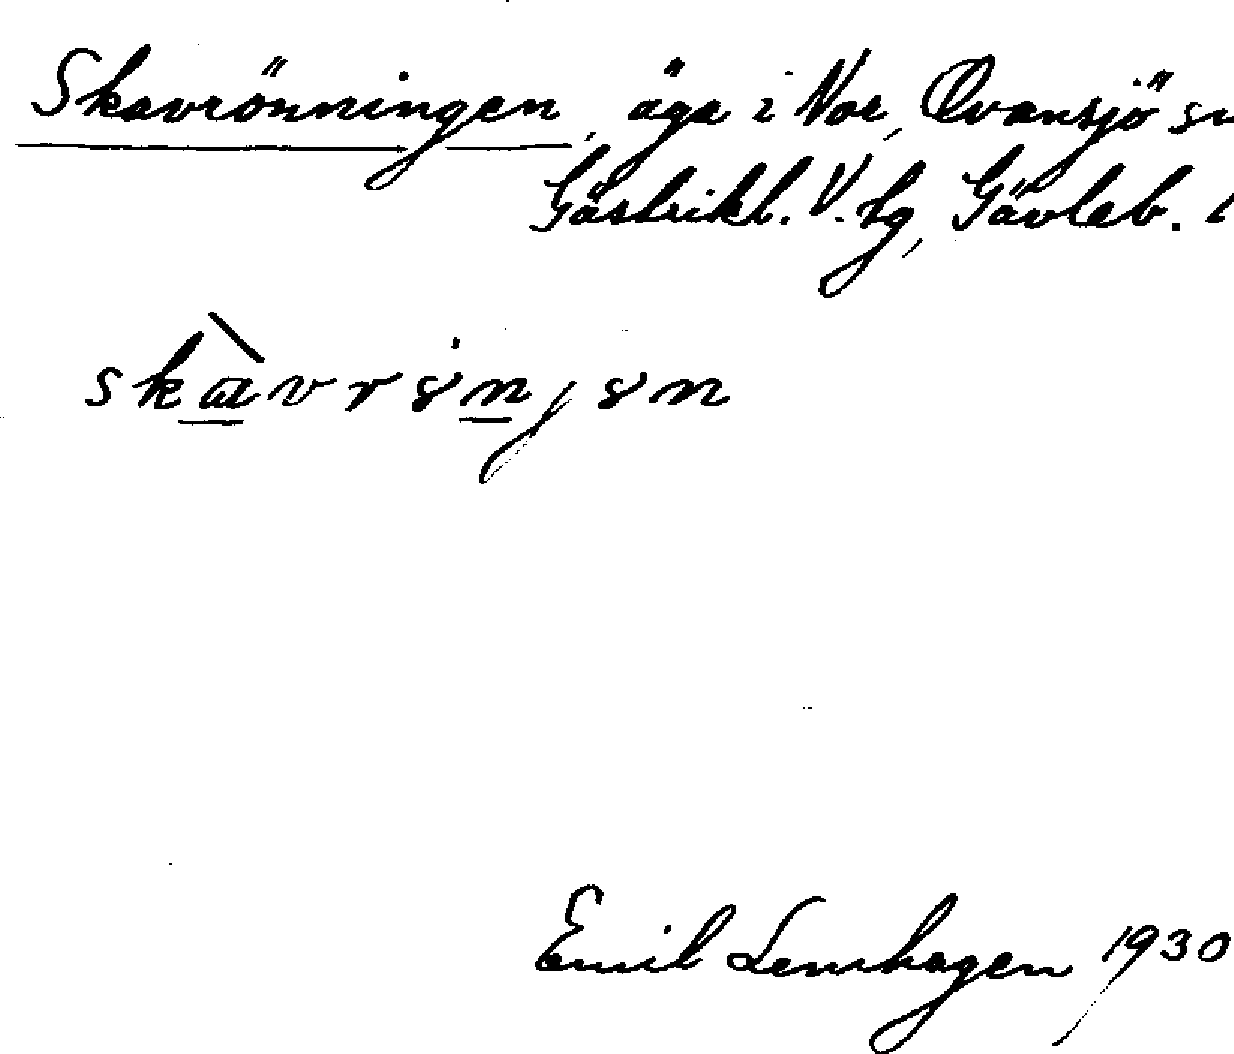 Skavrönningen, äga i Nor, Ovansjö sn
Gästrikl. V. tg, Gävleb. l
skàvrönjən
Emil Lenhagen 1930